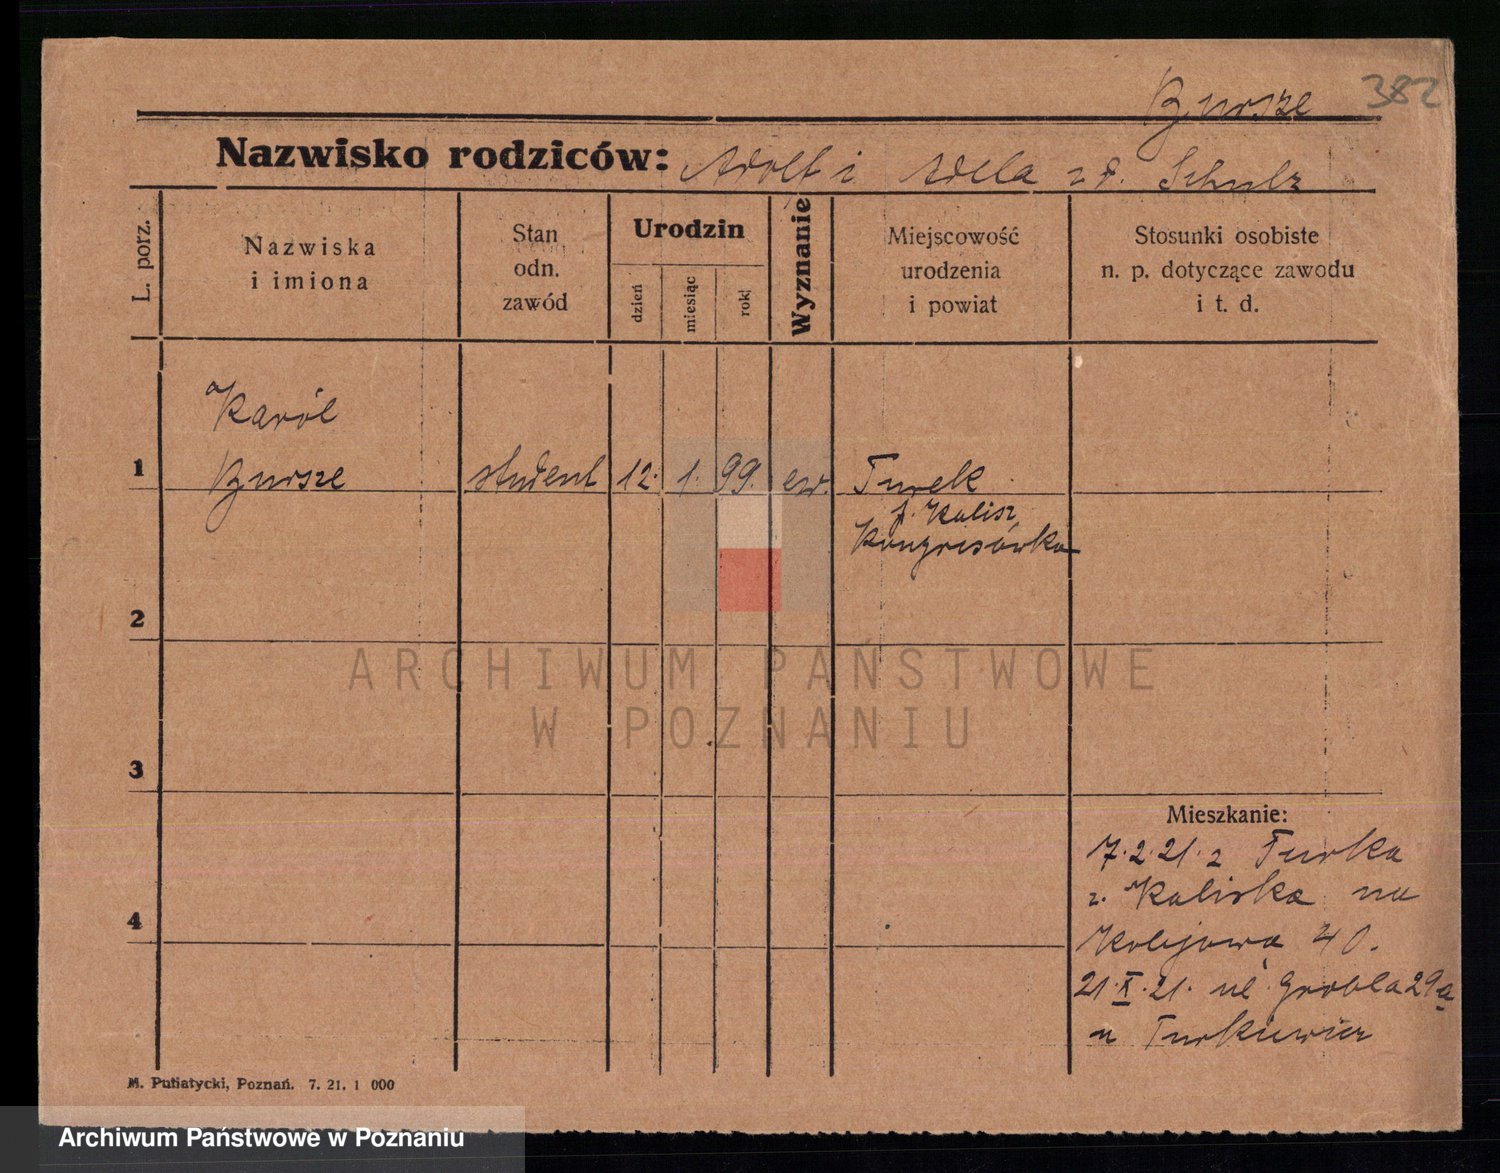 Bursze 382
Nazwisko rodziców: Adolf i Adela zd. Schulz
L. porz.
Nazwiska
i imiona
Stan
odn.
zawód
Urodzin
dzień
miesiąc
rok
Wyznanie
Miejscowość
urodzenia
i powiat
Stosunki osobiste
n. p. dotyczące zawodu
i t. d.
Karól
1 Bursze student 12. 1. 99. ew. Turek
p. Kalisz
Kongresówka
2
3
4
Mieszkanie:
7.2.21. z Turka
z. Kaliska na
Kolejową 40.
21.X.21. ul. Grobla 29a
u Turkiewicz
M. Putiatycki, Poznań. 7. 21. 1 000
ARCHIWUM PAŃSTWOWE
W POZNANIU
Archiwum Państwowe w Poznaniu